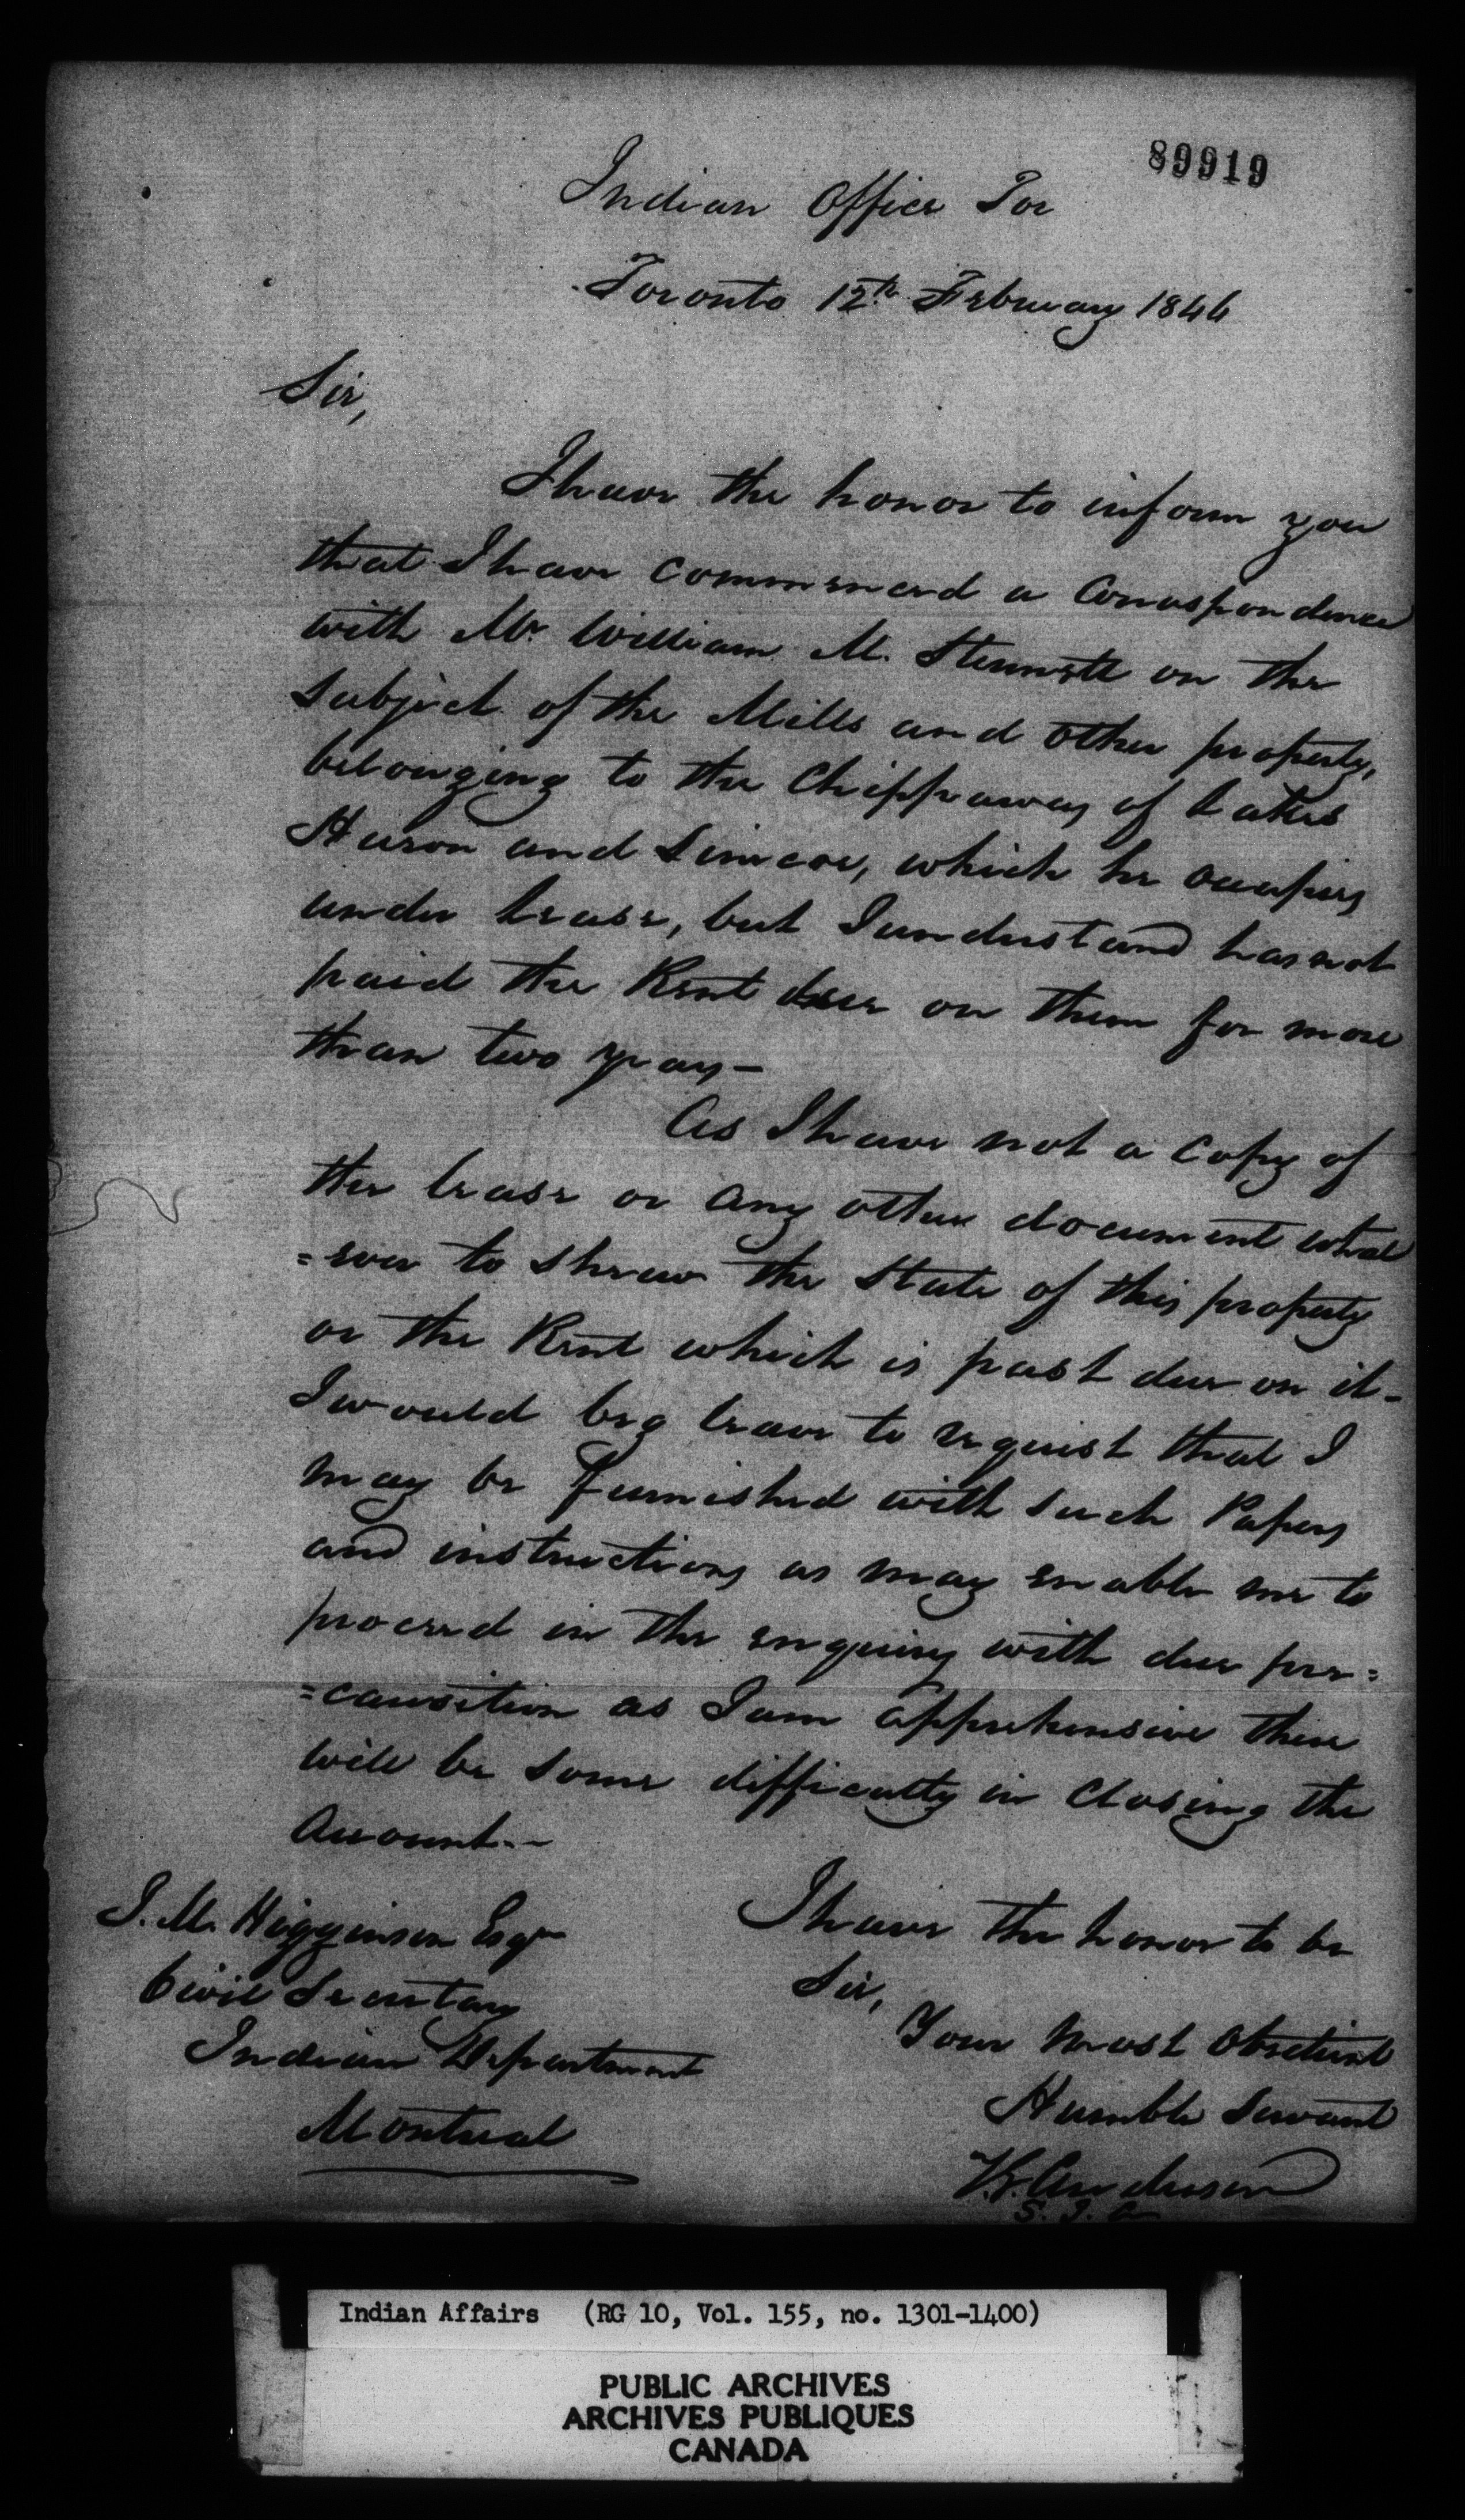 89919
Indian Office Tor
Toronto 12th February 1846
Sir,
I have the honor to inform you
that I have commenced a Correspondence
with Mr. William M. Stennett on the
subject of the Mills and other property,
belonging to the Chippaways of Lakes
Huron and Simcoe, which he occupies
under lease, but I understand has not
paid the Rent due on them for more
than two years—
As I have not a Copy of
the lease or any other document what
=ever to shew the State of this property
or the Rent which is past due on it-
I would beg leave to request that I
may be furnished with such Papers
and instructions as may enable me to
proceed in the enquiry with due pre=
=causition as I am apprehensive there
will be some difficulty in Closing the
Account.—
I have the honor to be
Sir,
Your most Obedient
Humble Servant
T.G. Anderson
S. I. A
J. M. Higginson Esqr
Civil Secretary
Indian Department
Montreal
Indian Affairs (RG 10, Vol. 155, no. 1301-1400)
PUBLIC ARCHIVES
ARCHIVES PUBLIQUES
CANADA